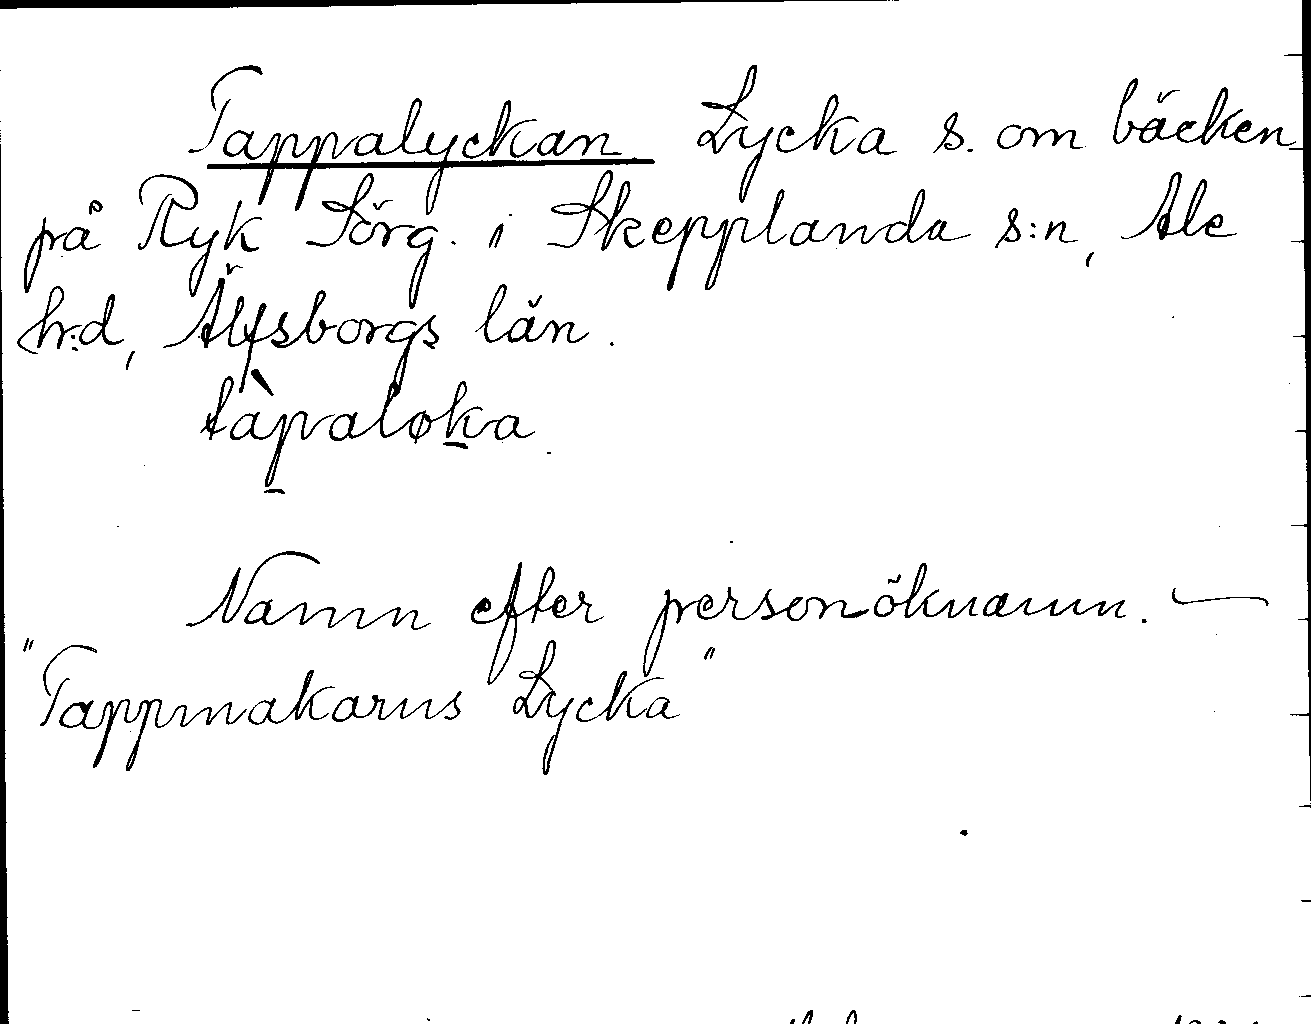 Tappalyckan Lycka s. om bäcken
på Ryk Sörg. i Skepplanda s:n, Ale
h:d, Älfsborgs län.
tàpaløka
Namn efter personöknamn. —
"Tappmakarns Lycka"